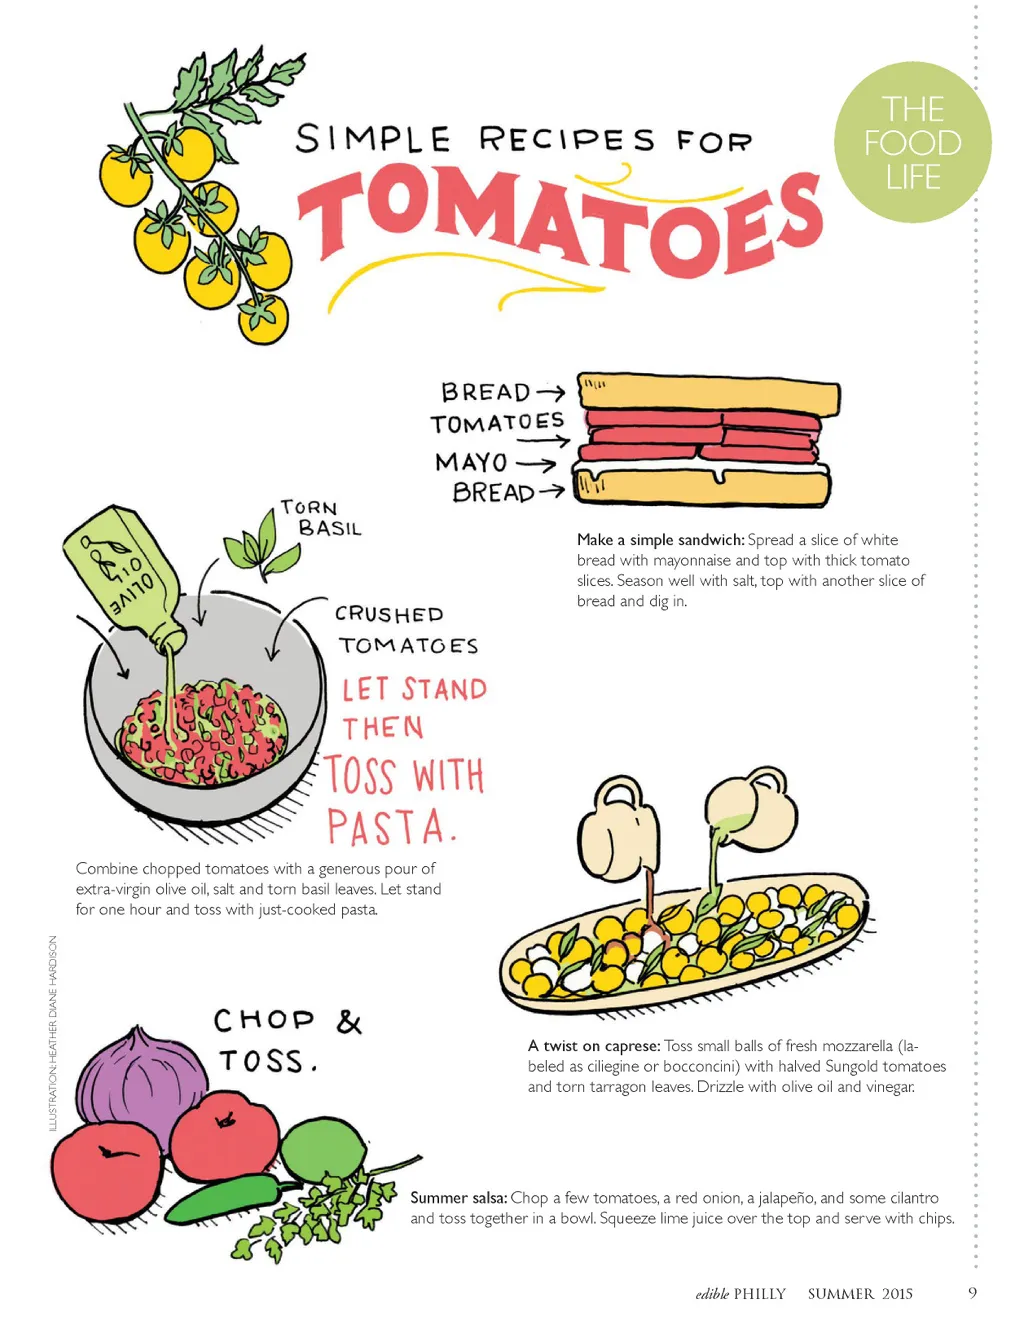 THE
FOOD
LIFE
SIMPLE RECIPES FOR
TOMATOES
BREAD
TOMATOES
MAYO
BREAD
Make a simple sandwich: Spread a slice of white
bread with mayonnaise and top with thick tomato
slices. Season well with salt, top with another slice of
bread and dig in.
TORN
BASIL
OLIVE
OIL
CRUSHED
TOMATOES
LET STAND
THEN
TOSS WITH
PASTA.
Combine chopped tomatoes with a generous pour of
extra-virgin olive oil, salt and torn basil leaves. Let stand
for one hour and toss with just-cooked pasta.
A twist on caprese: Toss small balls of fresh mozzarella (la-
beled as ciliegine or bocconcini) with halved Sungold tomatoes
and torn tarragon leaves. Drizzle with olive oil and vinegar.
ILLUSTRATION: HEATHER DIANE HARDISON
CHOP &
TOSS.
Summer salsa: Chop a few tomatoes, a red onion, a jalapeño, and some cilantro
and toss together in a bowl. Squeeze lime juice over the top and serve with chips.
edible PHILLY SUMMER 2015 9